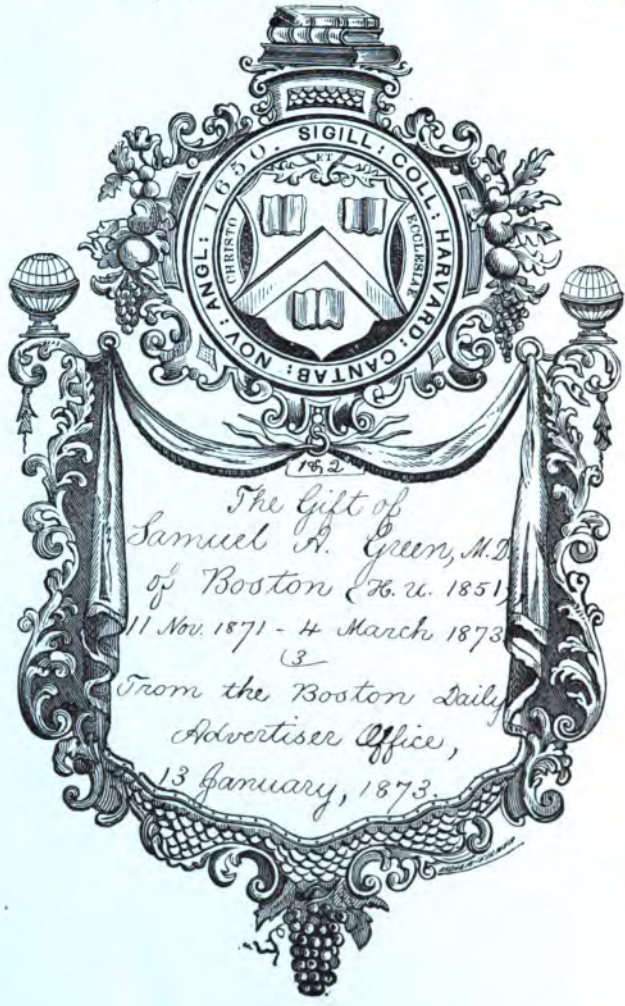 SIGILL: COLL: HARVARD: CANTAB: NOV: ANGL: 1650.
ET
CHRISTO
ECCLESIAE
1 & 2
The Gift of
Samuel A. Green, M.D.
of Boston (H. U. 1851)
11 Nov. 1871 - 4 March 1873
(3
From the Boston Daily
Advertiser Office,
13 January, 1873.